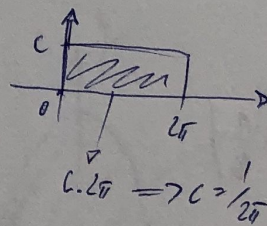 C
0
2π
C.2π => C = 1/2π